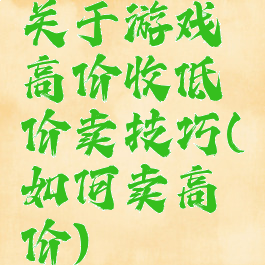 关于游戏
高价收低
价卖技巧(
如何卖高
价)